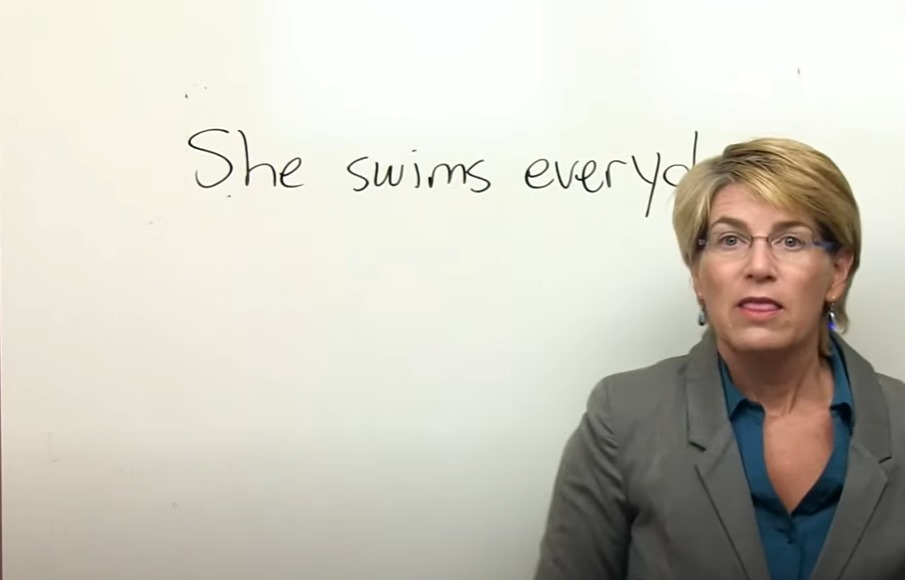 She swims everyd